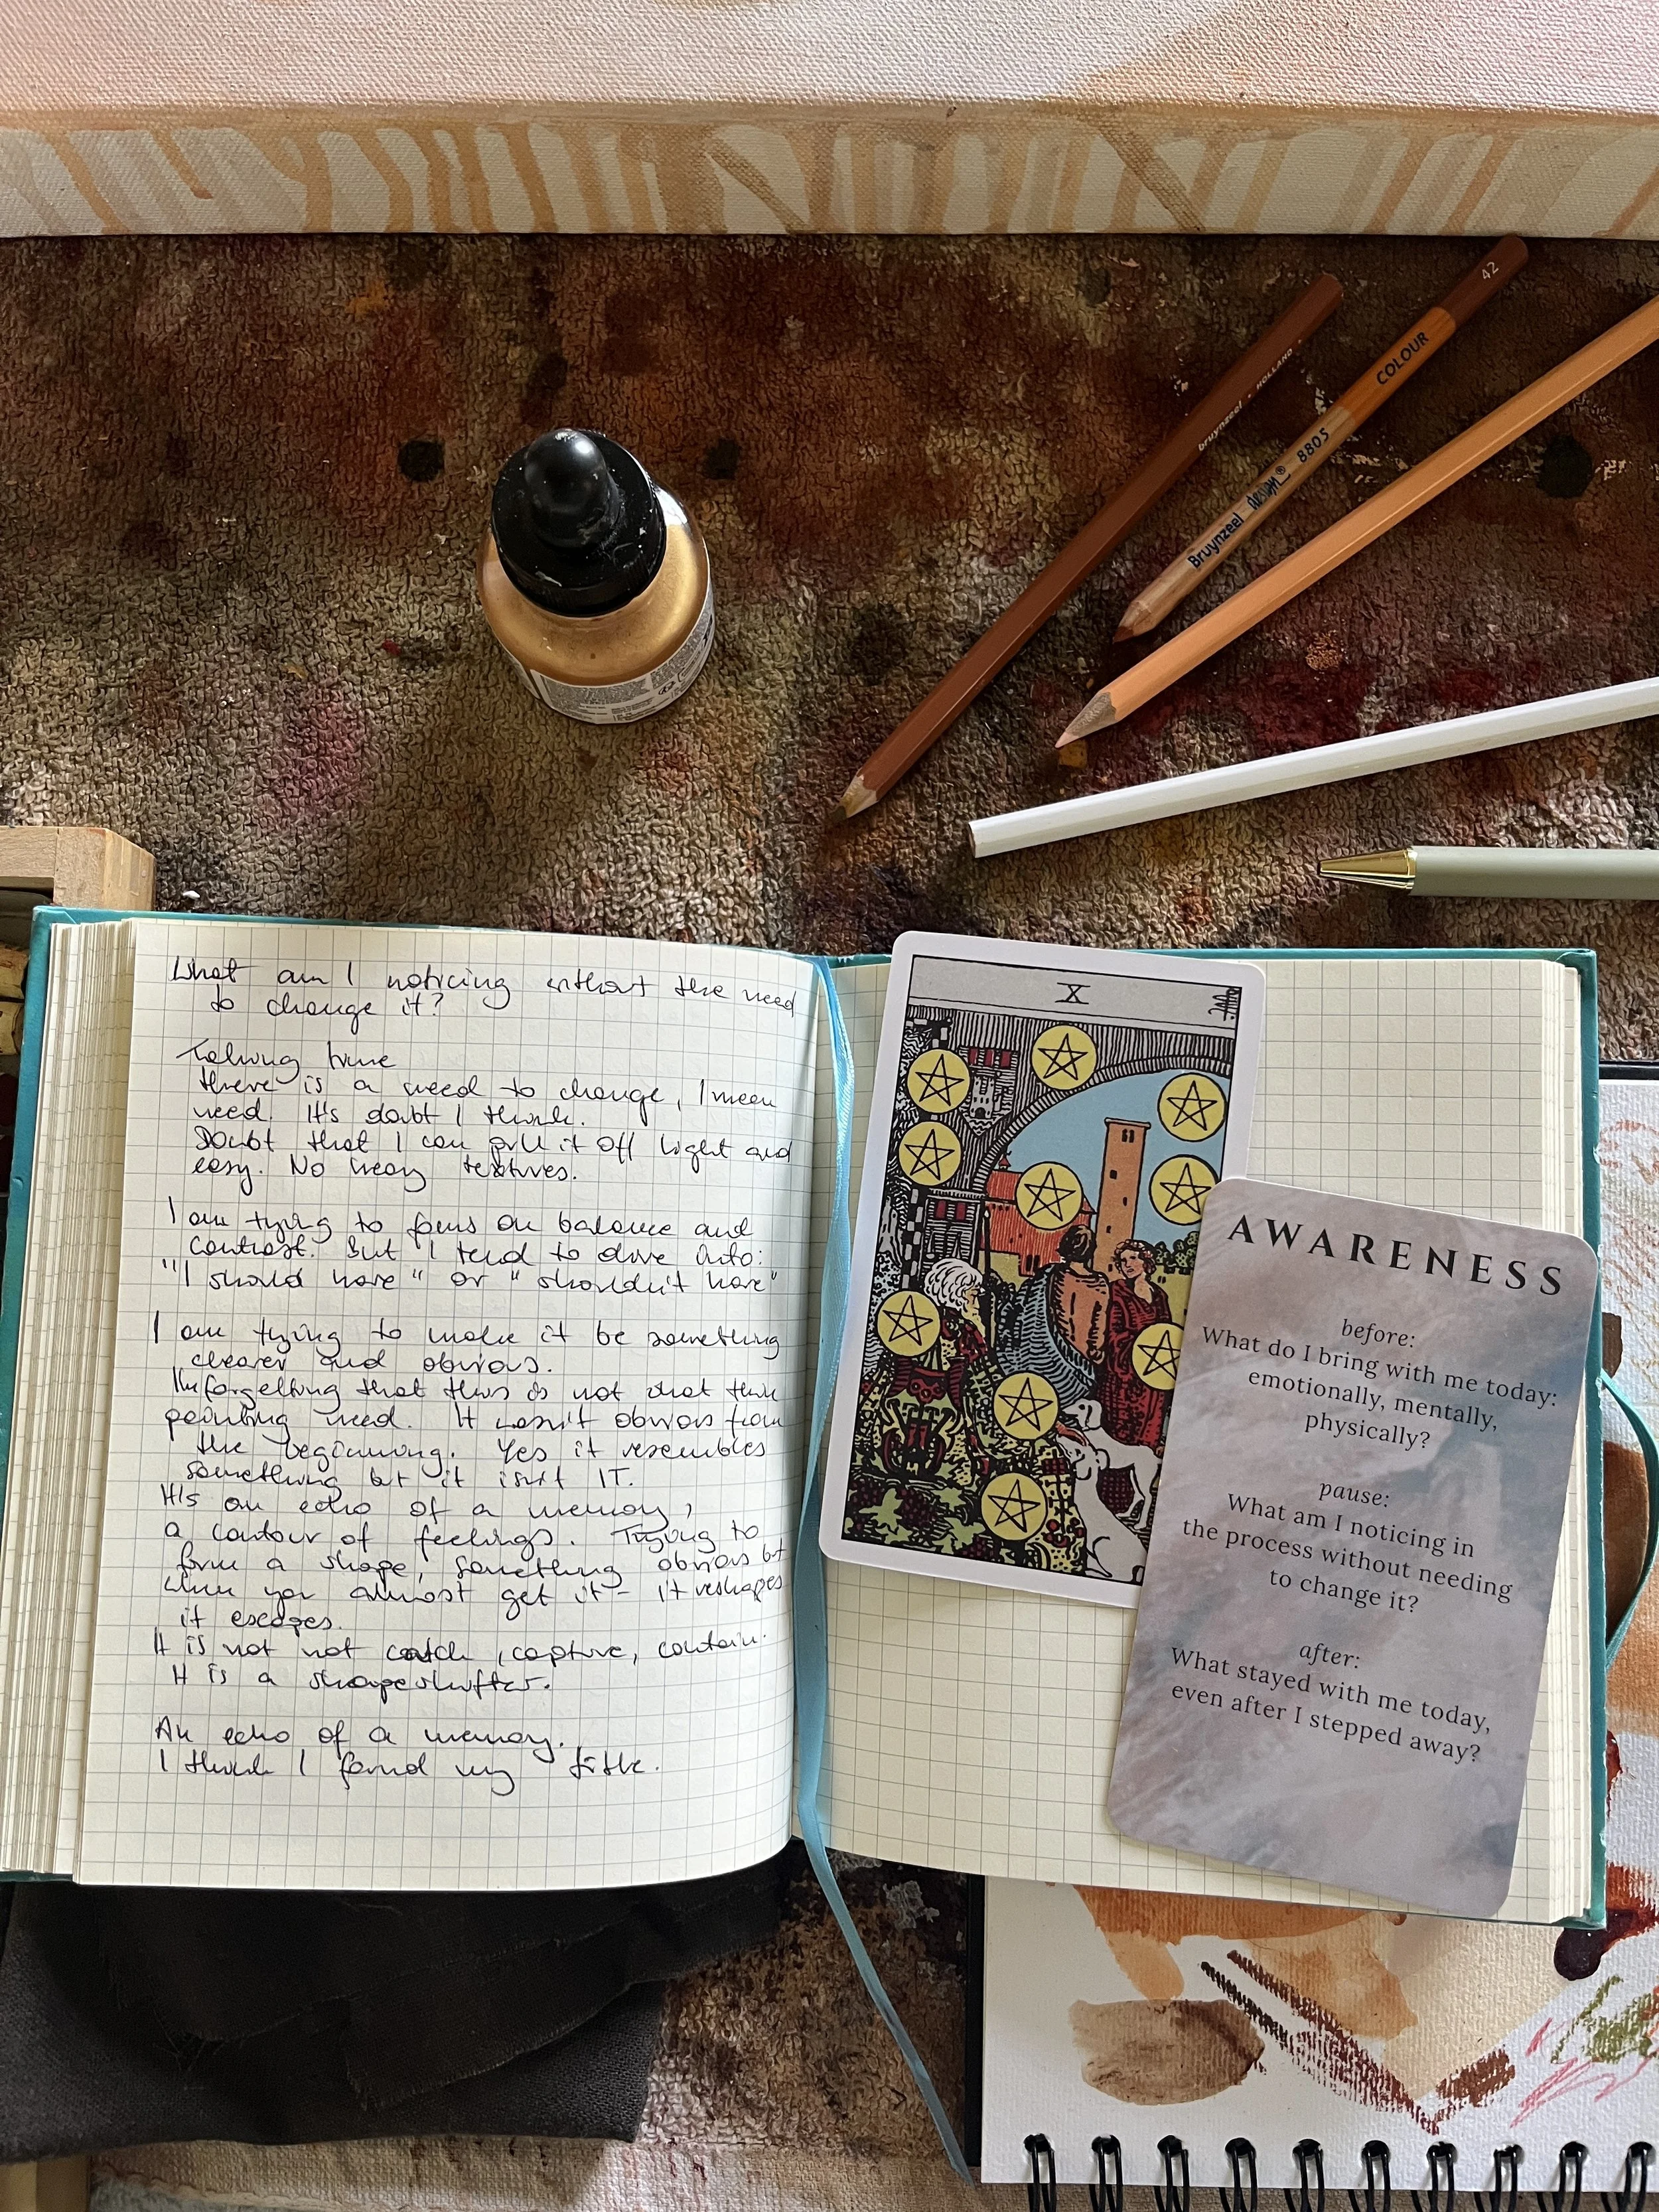 42
COLOUR
bruynzeel · HOLLAND ·
Bruynzeel design 8805
What am I noticing without the need
to change it?
Taking time
there is a need to change, I mean
need. It's doubt I think.
Doubt that I can pull it off light and
easy. No heavy textures.
I am trying to focus on balance and
contrast. But I tend to dive into:
"I should have" or "shouldn't have"
I am trying to make it be something
clearer and obvious.
I'm forgetting that this is not what this
painting need. It wasn't obvious from
the beginning. Yes it resembles
something but it isn't IT.
It's an echo of a memory,
a contour of feelings. Trying to
form a shape, something obvious but
when you almost get it - it reshapes
it escapes.
It is not not catch, capture, contain.
It is a shapeshifter.
An echo of a memory.
I think I found my title.
X
AWARENESS
before:
What do I bring with me today:
emotionally, mentally,
physically?
pause:
What am I noticing in
the process without needing
to change it?
after:
What stayed with me today,
even after I stepped away?